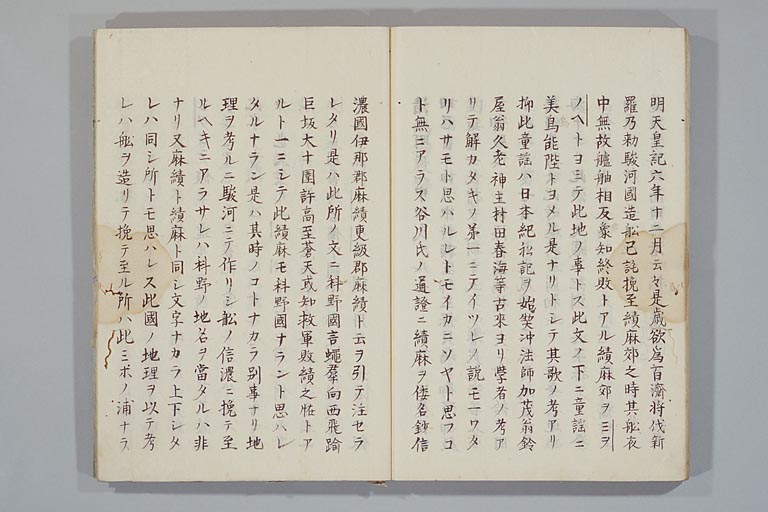 明天皇記六年十二月云々是歳欲爲百濟將伐新
羅乃勅駿河國造舩已訖挽至績麻郊之時其舩夜
中無故艫舳相反衆知終敗トアル績麻郊ヲミヲ
ノヘトヨミテ此地ノ事トス此文ノ下ニ童謡ニ
美烏能陛トヨメル是ナリトシテ其歌ノ考アリ
抑此童謡ハ日本紀私記ヲ始契沖法師加茂翁鈴
屋翁久老神主村田春海等古來ヨリ學者ノ考ア
リテ解カタキノ第一ニテイツレノ説モ一ワタ
リハサモト思ハルレトモイカニソヤト思フコ
ト無ニアラス谷川氏ノ通證ニ績麻ヲ倭名鈔信
濃國伊那郡麻績更級郡麻績ト云ヲ引テ注セラ
レタリ是ハ此所ノ文ニ科野國言蠅群向西飛踰
巨坂大十圍許高至蒼天或知救軍敗績之恠トア
ルト一ニシテ此績麻モ科野國ナラント思ハレ
タルナラン是ハ其時ノコトナカラ別事ナリ地
理ヲ考ルニ駿河ニテ作リシ舩ノ信濃ニ挽テ至
ルヘキニアラサレハ科野ノ地名ヲ當タルハ非
ナリ又麻績ト績麻ト同シ文字ナカラ上下シタ
レハ同シ所トモ思ハレス此國ノ地理ヲ以テ考
レハ舩ヲ造リテ挽テ至ル所ハ此ミホノ浦ナラ